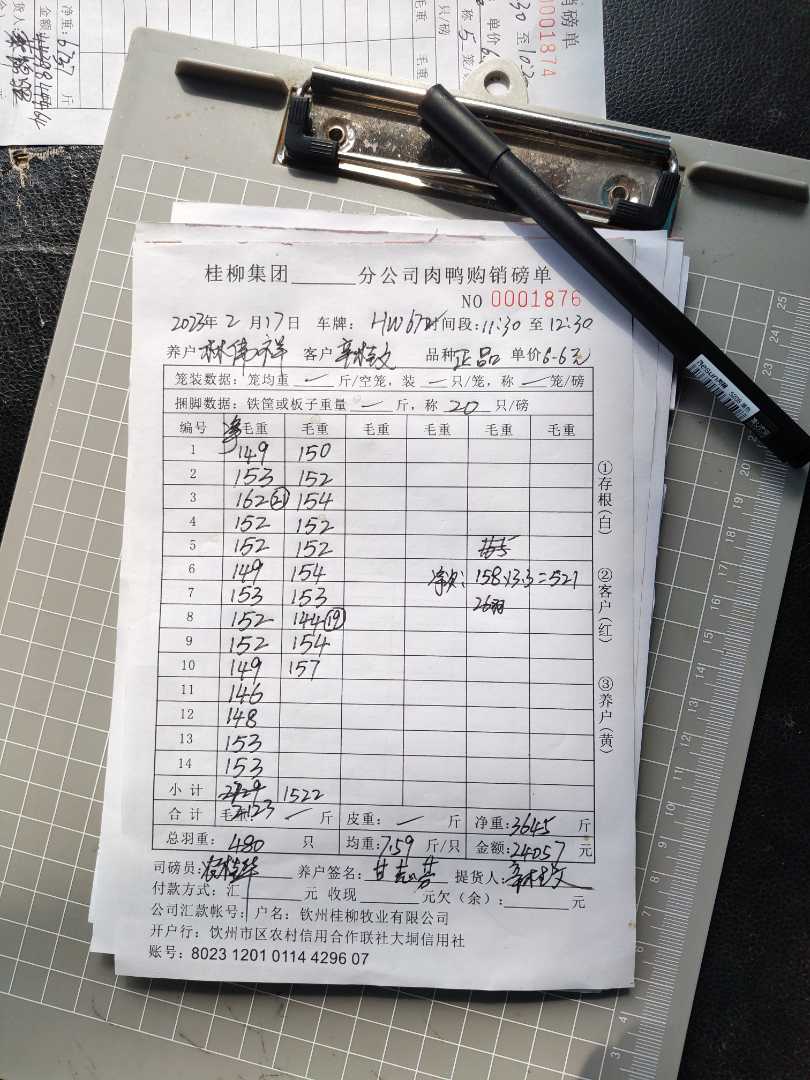 销磅单
0001874
净重: 6737 斤
桂柳集团______分公司肉鸭购销磅单
NO 0001876
2023年 2 月 17 日 车牌: 间段: 11:30 至 12:30
养户 林伟祥 客户 品种 正品 单价 6.6元
笼装数据: 笼均重 — 斤/空笼, 装 — 只/笼, 称 — 笼/磅
捆脚数据: 铁筐或板子重量 — 斤, 称 20 只/磅
编号 净毛重 毛重 毛重 毛重 毛重 毛重
1 149 150
2 153 152
3 162 (21) 154
4 152 152
5 152 152
6 149 154 158×3.3=521
7 153 153 26羽
8 152 144 (19)
9 152 154
10 149 157
11 146
12 148
13 153
14 153
小计 2123 1522
合计 毛重: — 斤 皮重: — 斤 净重: 3645 斤
总羽重: 480 只 均重: 7.59 斤/只 金额: 24057 元
司磅员: 养户签名: 提货人:
付款方式: 汇______元 收现______元欠(余):______元
公司汇款帐号: 户名: 钦州桂柳牧业有限公司
开户行: 钦州市区农村信用合作联社大垌信用社
账号: 8023 1201 0114 4296 07
①存根(白)
②客户(红)
③养户(黄)